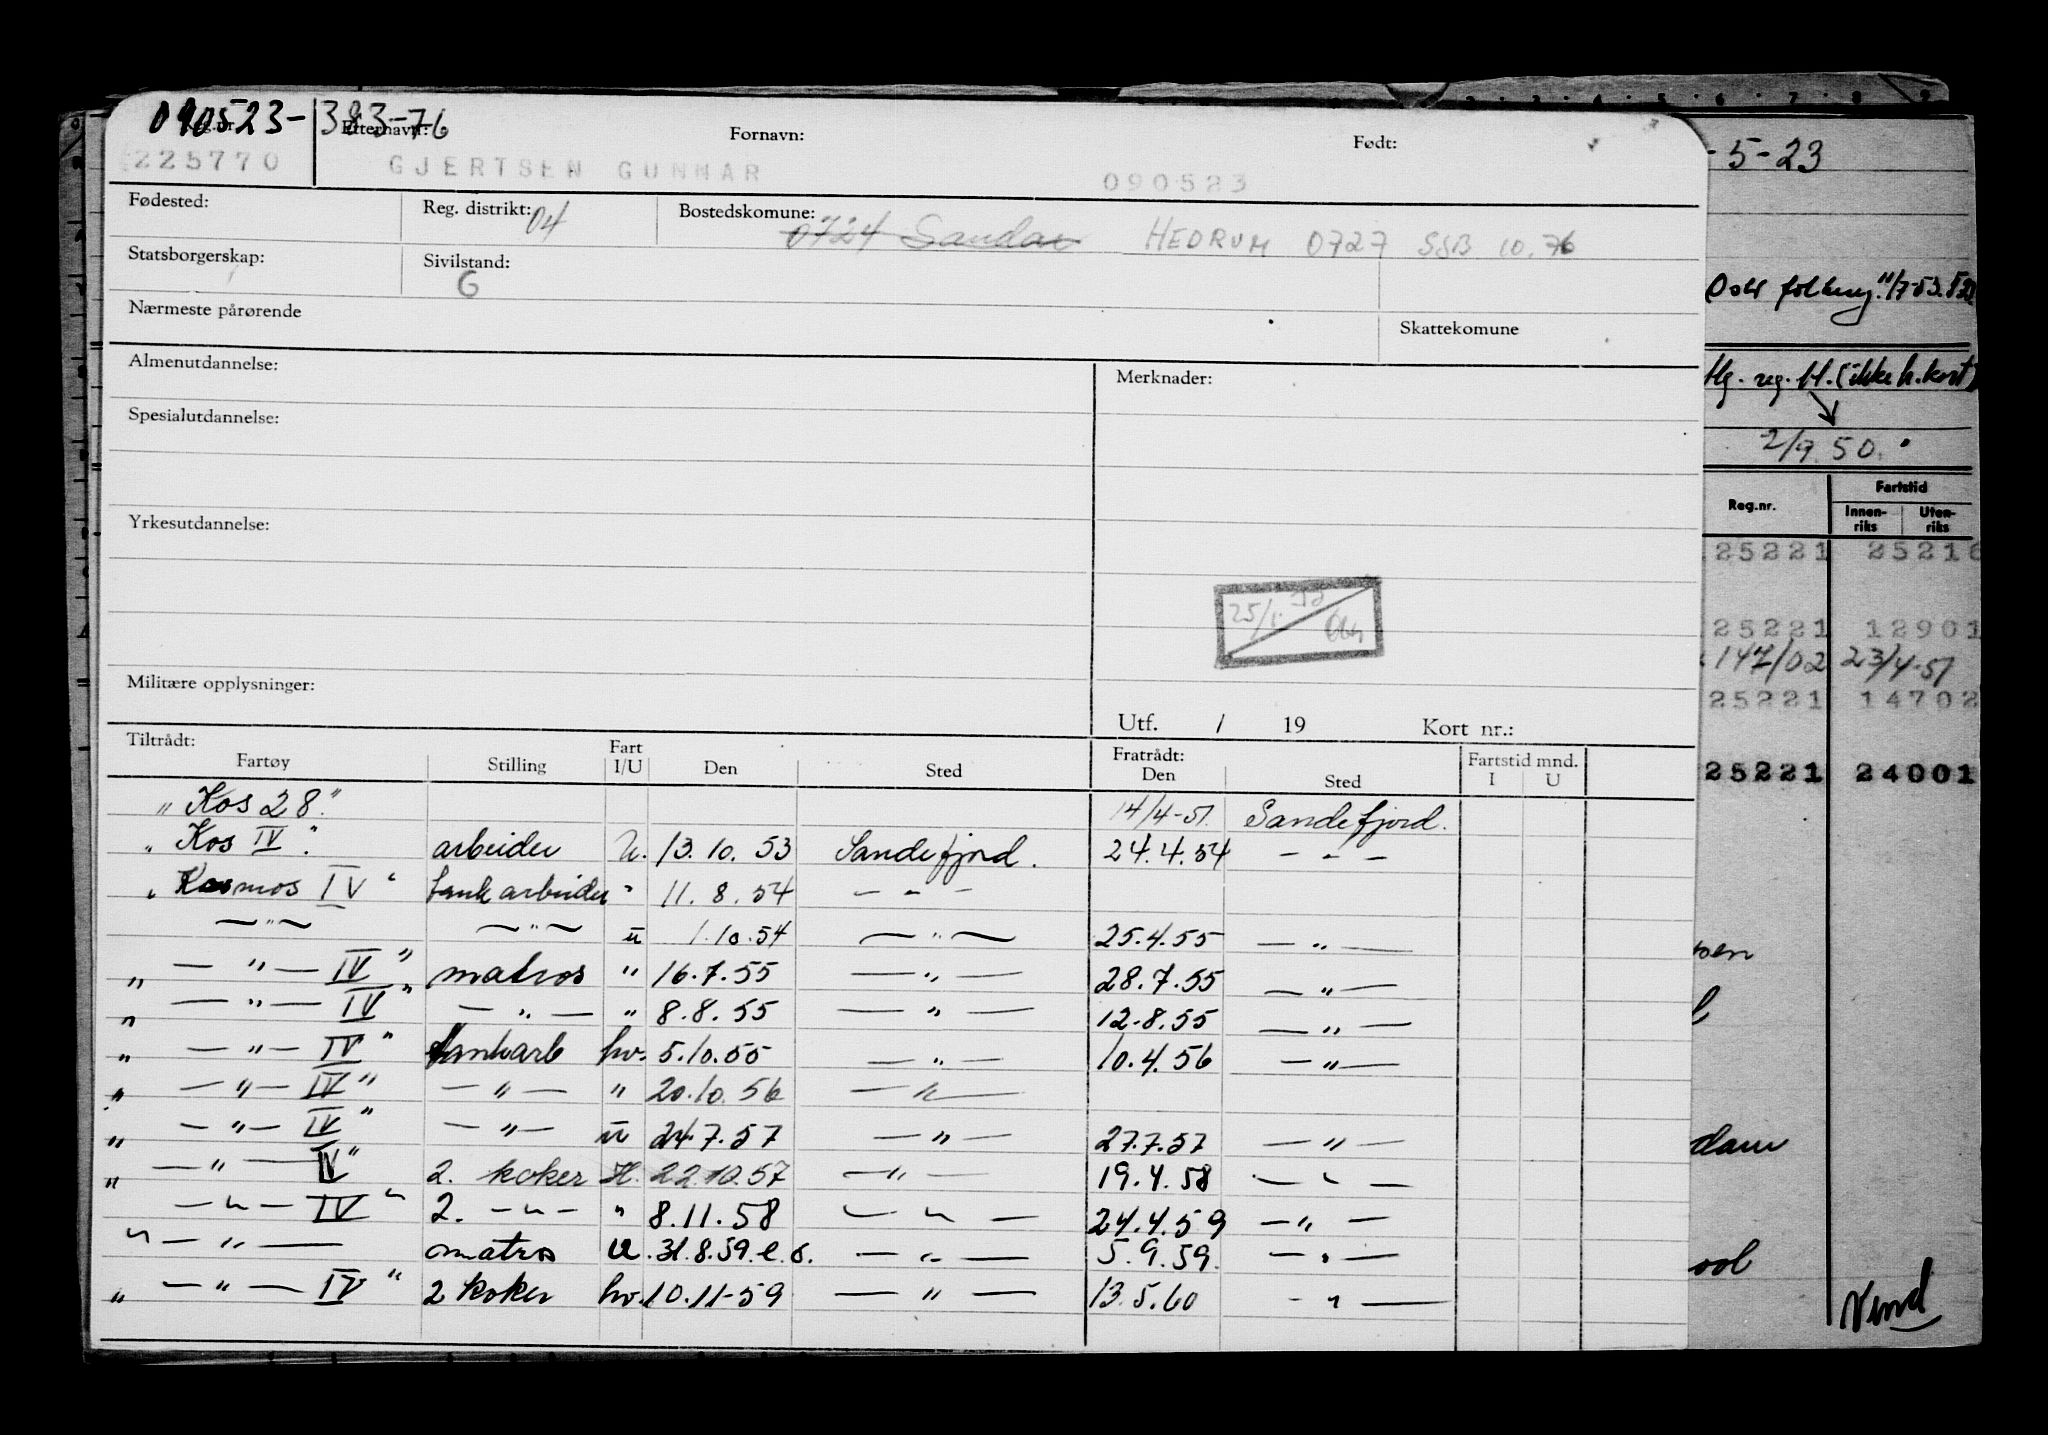 090523-383-76
Reg.nr. Etternavn: Fornavn: Født:
225770 GJERTSEN GUNNAR 090523
Fødested: Reg. distrikt: 04 Bostedskomune: 0724 Sandar HEDRUM 0727 SSB 10.76
Statsborgerskap: Sivilstand: G
Nærmeste pårørende Skattekomune
Almenutdannelse: Merknader:
Spesialutdannelse:
Yrkesutdannelse:
25/1
Militære opplysninger:
Utf. / 19 Kort nr.:
Tiltrådt: Fratrådt:
Fartøy Stilling Fart I/U Den Sted Den Sted Fartstid mnd. I U
„ Kos 28." 14/4-51. Sandefjord.
„ Kos IV ." arbeider U. 13.10.53 Sandefjord. 24.4.54 — " —
„ Kosmos IV " tankarbeider " 11.8.54 — " —
— " — — " — u 1.10.54 — " — 25.4.55 — " —
„ — " — IV " matros " 16.7.55 — " — 28.7.55 — " —
„ — " — IV " — " — " 8.8.55 — " — 12.8.55 — " —
„ — " — IV " tankarb hv. 5.10.55 — " — 10.4.56 — " —
„ — " — IV " — " — " 20.10.56 — " —
„ — " — IV " — " — u 24.7.57 — " — 27.7.57 — " —
„ — " — IV " 2. koker H. 22.10.57 — " — 19.4.58 — " —
— " — IV " 2. — " — " 8.11.58 — " — 24.4.59 — " —
" — " — matros U. 31.8.59. e.s. — " — 5.9.59. — " —
„ — " — IV " 2 koker hv. 10.11-59 — " — 13.5.60 — " —
-5-23
reg. (ikke h.kort)
2/9.50.
Reg.nr. Fartstid
Innenriks Utenriks
25221 25216
25221 12901
147/02 23/4-51
25221 14702
25221 24001
sen
dam
ool
Vend